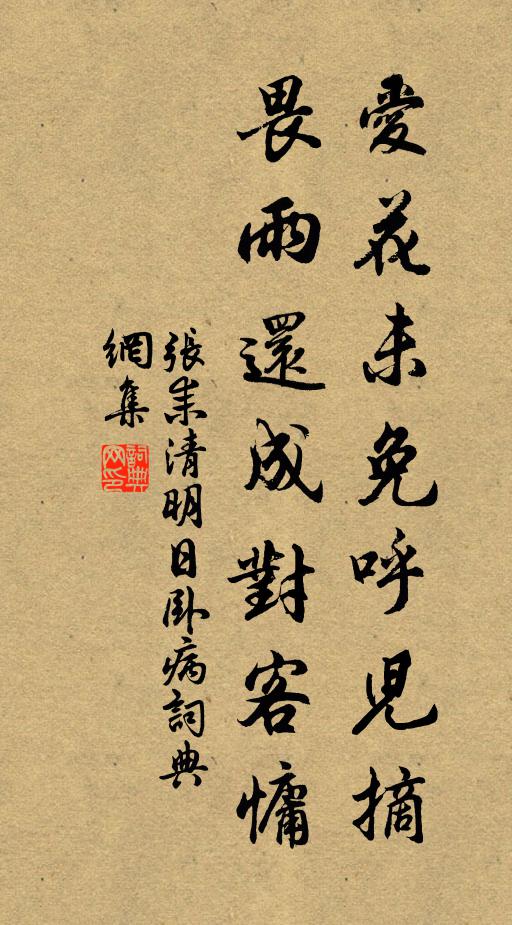 愛花未免呼児摘
畏雨還成對客慵
張耒清明日卧病詞典
網集
詞典
网印